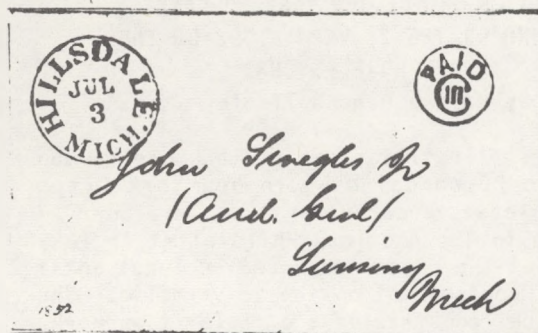 HILLSDALE MICH.
JUL
3
PAID
C III
John Swegles Jr
(Aud. Genl)
Lansing
Mich
1852